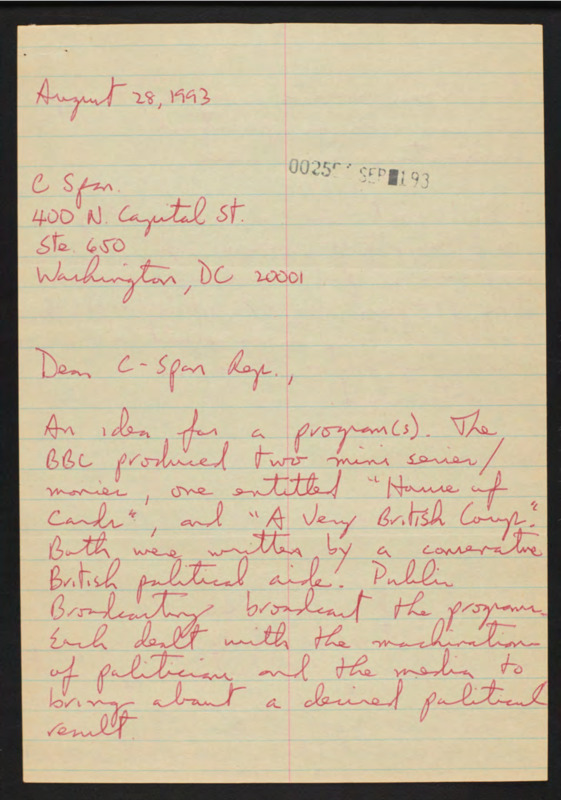 August 28, 1993
SEP 1 93
C Span.
400 N. Capital St.
Ste. 650
Washington, DC 20001
Dear C-Span Rep.,
An idea for a program(s). The
BBC produced two mini series/
movies, one entitled "House of
Cards", and "A Very British Coup."
Both were written by a conservative
British political aide. Public
Broadcasting broadcast the programs.
Each dealt with the machinations
of politicians and the media to
bring about a desired political
result.